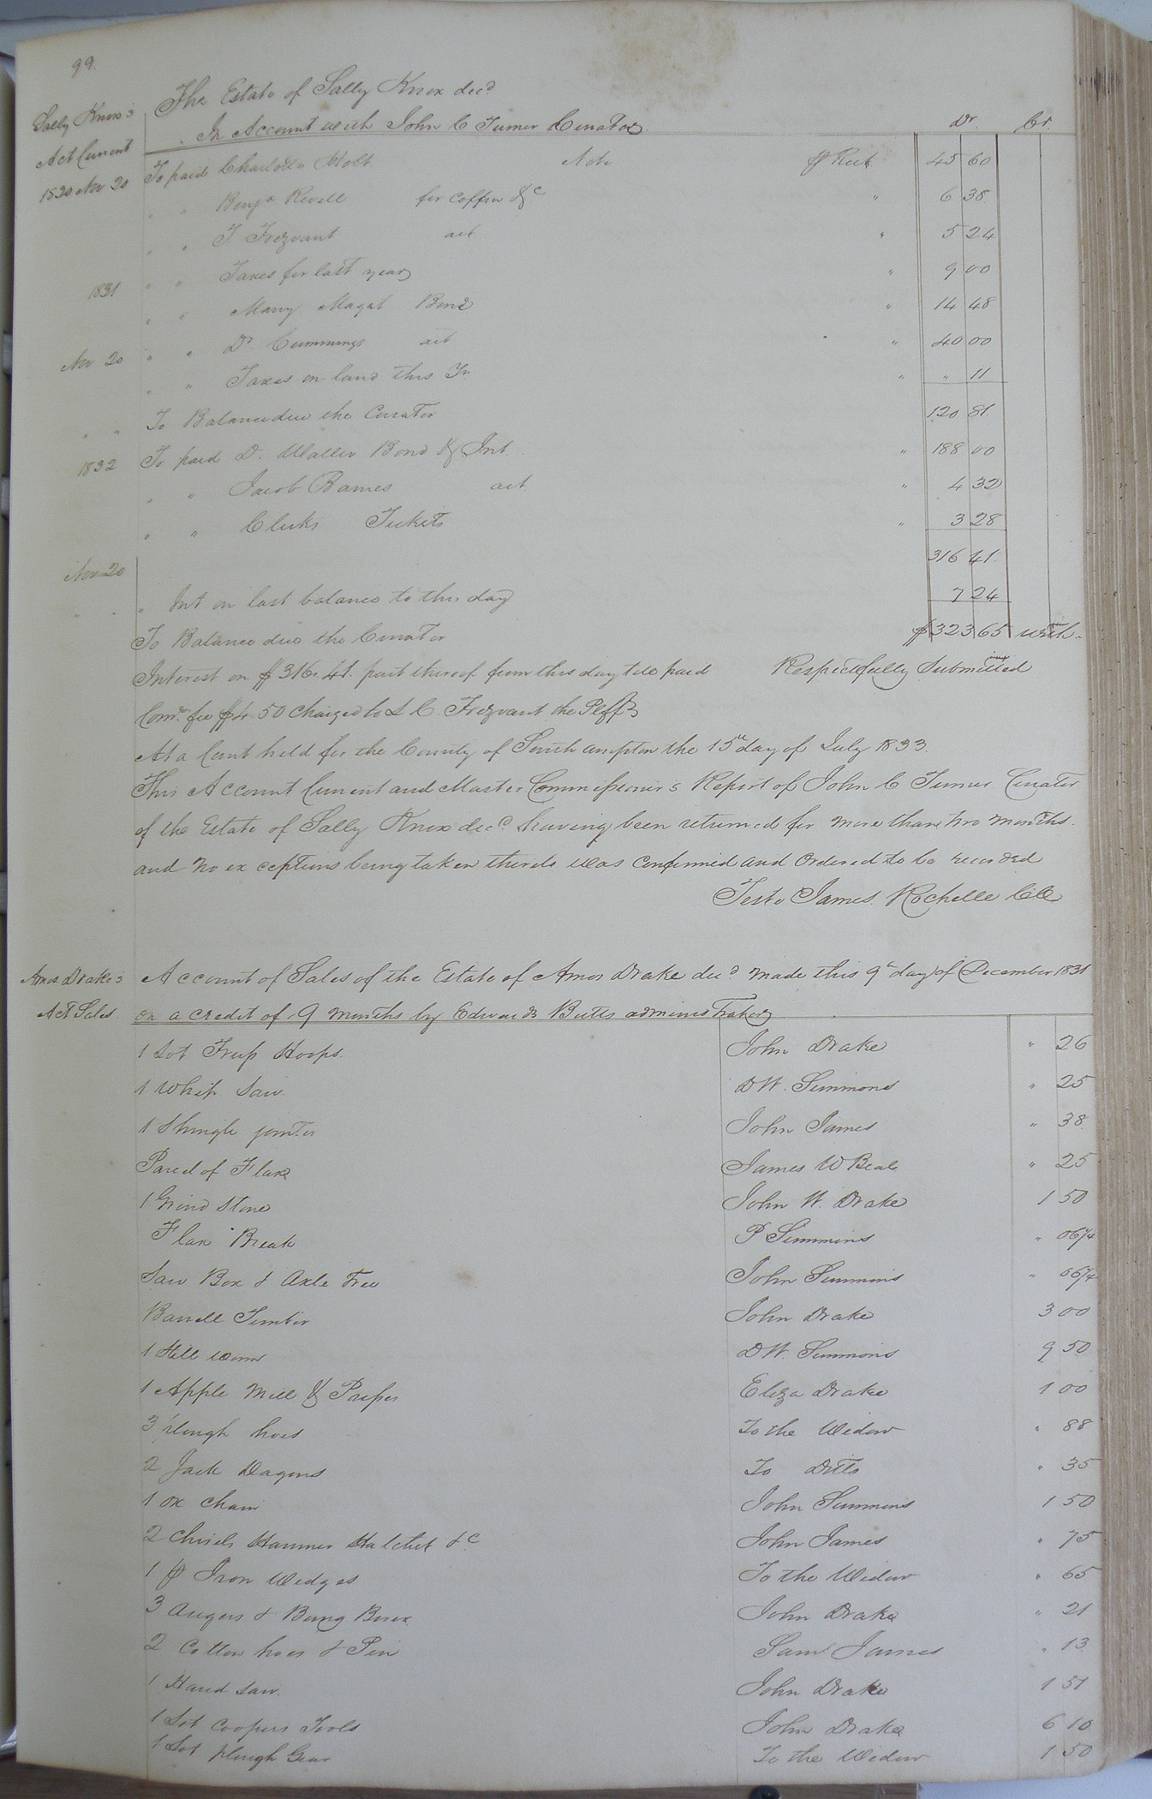 99.
Sally Knox's
Act Current
The Estate of Sally Knox decd
In Account with John C Turner Curator Dr Cr
1830 Nov 20 To paid Charlotte Holt Note pr Rect 45 60
" " Benja Revell for coffin &c " 6 38
" " T Trezvant act " 5 24
" " Taxes for last year " 9 00
1831 " " Mary Bond " 14 48
" " Dr Cummings act " 40 00
Nov 20 " " Taxes on land this Yr " " 11
" " To Balance due the Curator 120 81
1832 To paid D. Waller Bond & Int. " 188 00
" " Jacob Barnes act " 4 32
" " Clerks Tickets " 3 28
316 41
Nov 20
" " Int on last balance to this day 7 24
To Balance due the Curator $323 65 with
Interest on $316.41. part thereof from this day till paid Respectfully Submitted
Comr. fee $4.50 Charged to L C Trezvant the Plff
At a Court held for the County of Southampton the 15th day of July 1833.
This Account Current and Master Commissioner's Report of John C Turner Curator
of the Estate of Sally Knox decd having been returned for more than two months.
and no exceptions being taken thereto was confirmed and Ordered to be recorded
Teste James Rochelle Clk
Amos Drake's
Act Sales
Account of Sales of the Estate of Amos Drake decd made this 9th day of December 1831
on a credit of 9 months by Edwards Butts administrator
1 Lot Truss Hoops. John Drake " 26
1 Whip Saw. D W. Simmons " 25
1 Shingle jointer John James " 38
Parcel of Flax James W Beal " 25
1 Grind Stone John W. Drake 1 50
Flax Break P Simmons " 06¼
Saw Box & Axle Tree John Simmons " 06¼
Barrell Timber John Drake 3 00
1 Still worm D W. Simmons 9 50
1 Apple Mill & Press Eliza Drake 1 00
3 plough hoes To the Widow " 88
2 Jack Wagons To Ditto " 35
1 ox chain John Simmons 1 50
2 Chisels Hammer Hatchet &c John James " 75
1 pr Iron Wedges To the Widow " 65
3 Augers & Bung Borer John Drake " 21
2 Cotton hoes & Pin Saml James " 13
1 Hand Saw. John Drake 1 51
1 Lot Coopers Tools John Drake 6 10
1 Lot plough Gear To the Widow 1 50